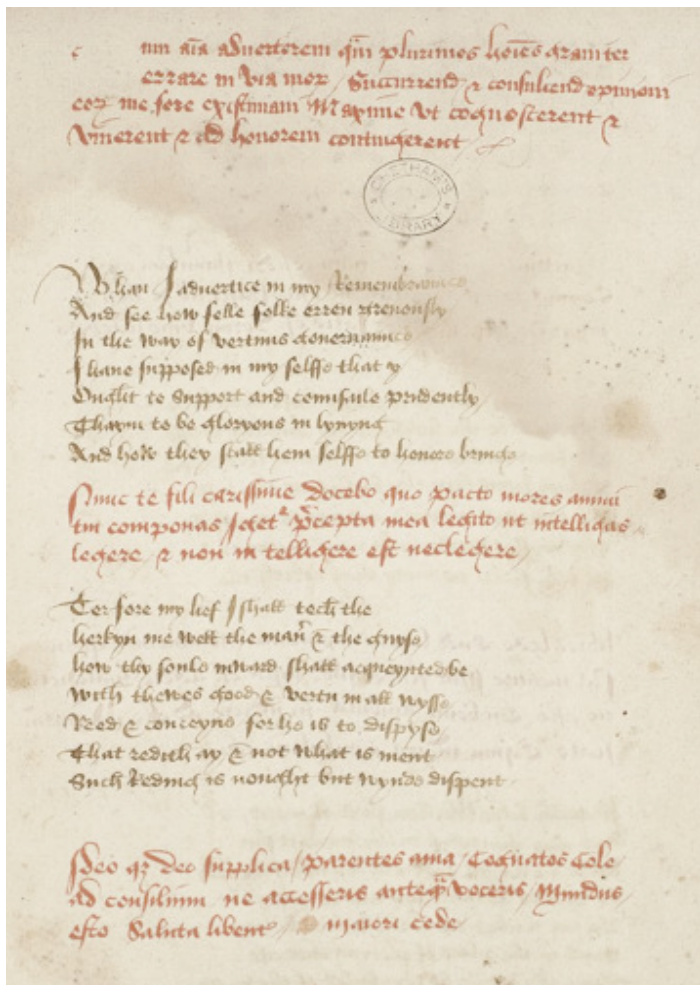 c um aīa aduerterem qm̄ plurimos hoīes grauiter
errare in via mor Succurrend & consulend opinioni
eoꝝ me fore existimaui Maxime vt cognoscerent &
viuerent & ad honorem contingerent
CHETHAM'S
LIBRARY
Whan I aduertice in my Remembraunce
And see how felle folke erren greuously
In the way of vertuus gouernaunce
I haue supposed in my selffe that y
Ought to Support and counsule prudently
Thaym to be gloryous in lyuyng
And how they shall hem selffe to honore bringe
Nunc te fili carissime docebo quo pacto mores animi
tui componas Igetᵉ p̄cepta mea legito ut intelligas
legere & non in telligere est neclegere
Ter fore my lief I shall tech the
herkyn me well the man̄ & the guyse
how thy soule inward shall acqueynted be
with thewes good & vertu in all wysse
Red & conceyue for he is to dispyse
That redith ay & not what is ment
Such Reding is nought but wynde dispent
Ideo qꝫ deo supplica / parentes ama Cognatos Cole
ad consilium ne accesseris anteq̄ voceris Mundus
esto Saluta libent maiori cede